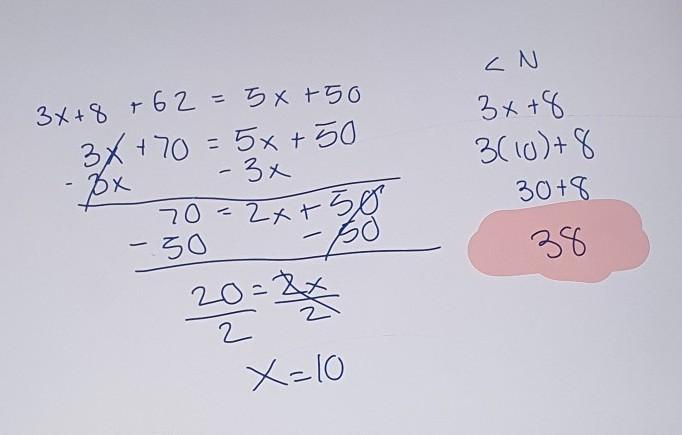 3x+8 +62 = 5x+50
3x +70 = 5x + 50
- 3x - 3x
70 = 2x + 50
- 50 - 50
20 = 2x
2 2
x=10
< N
3x +8
3(10)+8
30+8
38